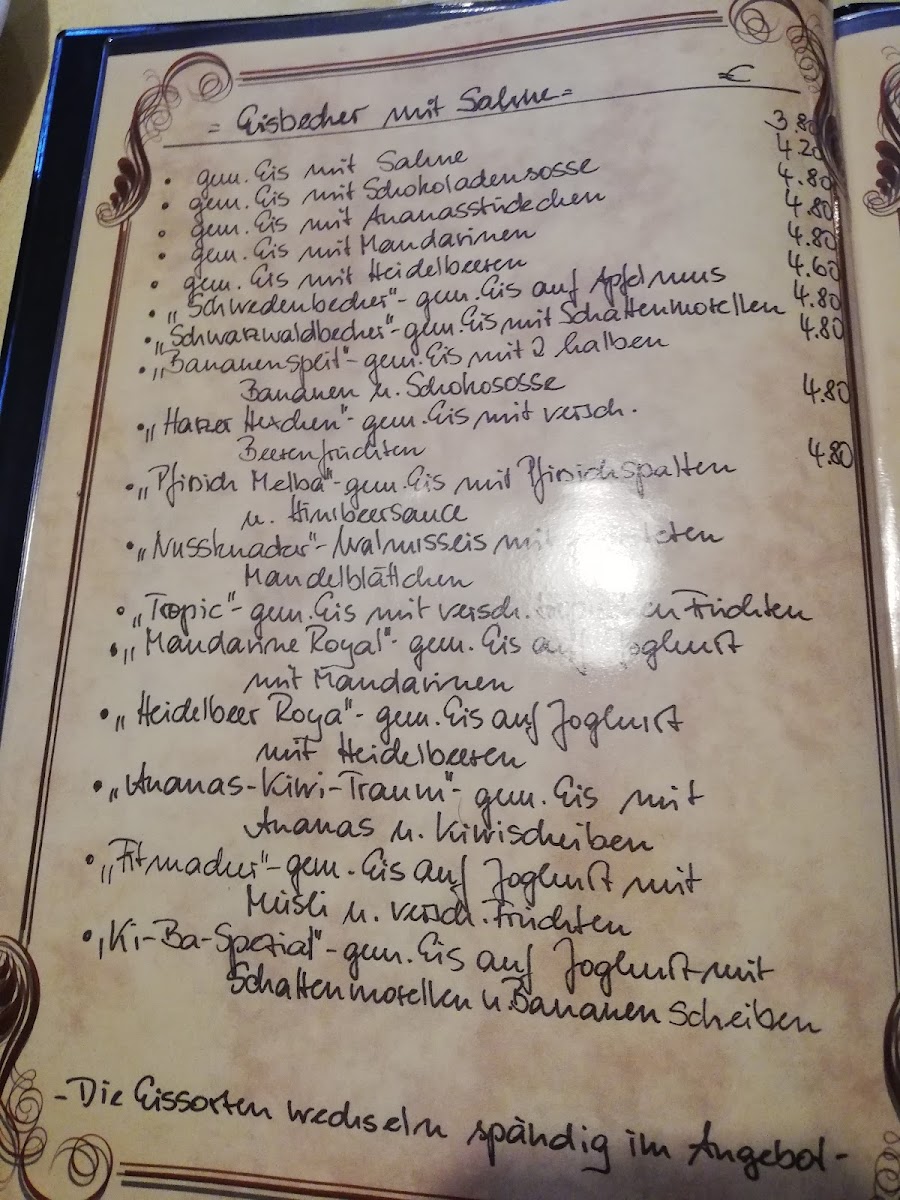 €
= Eisbecher mit Sahne =
• gem. Eis mit Sahne 3.80
• gem. Eis mit Schokoladensosse 4.20
• gem. Eis mit Ananasstückchen 4.80
• gem. Eis mit Mandarinen 4.80
• gem. Eis mit Heidelbeeren 4.80
• „Schwedenbecher"- gem. Eis auf Apfelmus 4.60
• „Schwarzwaldbecher"- gem. Eis mit Schattenmorellen 4.80
• „Bananensplit"- gem. Eis mit 2 halben 4.80
Bananen u. Schokososse
• „Harzer Hexchen"- gem. Eis mit versch. 4.80
Beerenfrüchten
• „Pfirsich Melba"- gem. Eis mit Pfirsichspalten 4.80
u. Himbeersauce
• „Nussknacker"- Walnusseis mit
Mandelblättchen
• „Tropic"- gem. Eis mit versch. Früchten
• „Mandarine Royal"- gem. Eis auf Joghurt
mit Mandarinen
• „Heidelbeer Roya"- gem. Eis auf Joghurt
mit Heidelbeeren
• „Ananas-Kiwi-Traum"- gem. Eis mit
Ananas u. Kiwischeiben
• „Fitmacher"- gem. Eis auf Joghurt mit
Müsli u. versch. Früchten
• „Ki-Ba-Spezial"- gem. Eis auf Joghurt mit
Schattenmorellen u. Bananen Scheiben
- Die Eissorten wechseln spändig im Angebot -